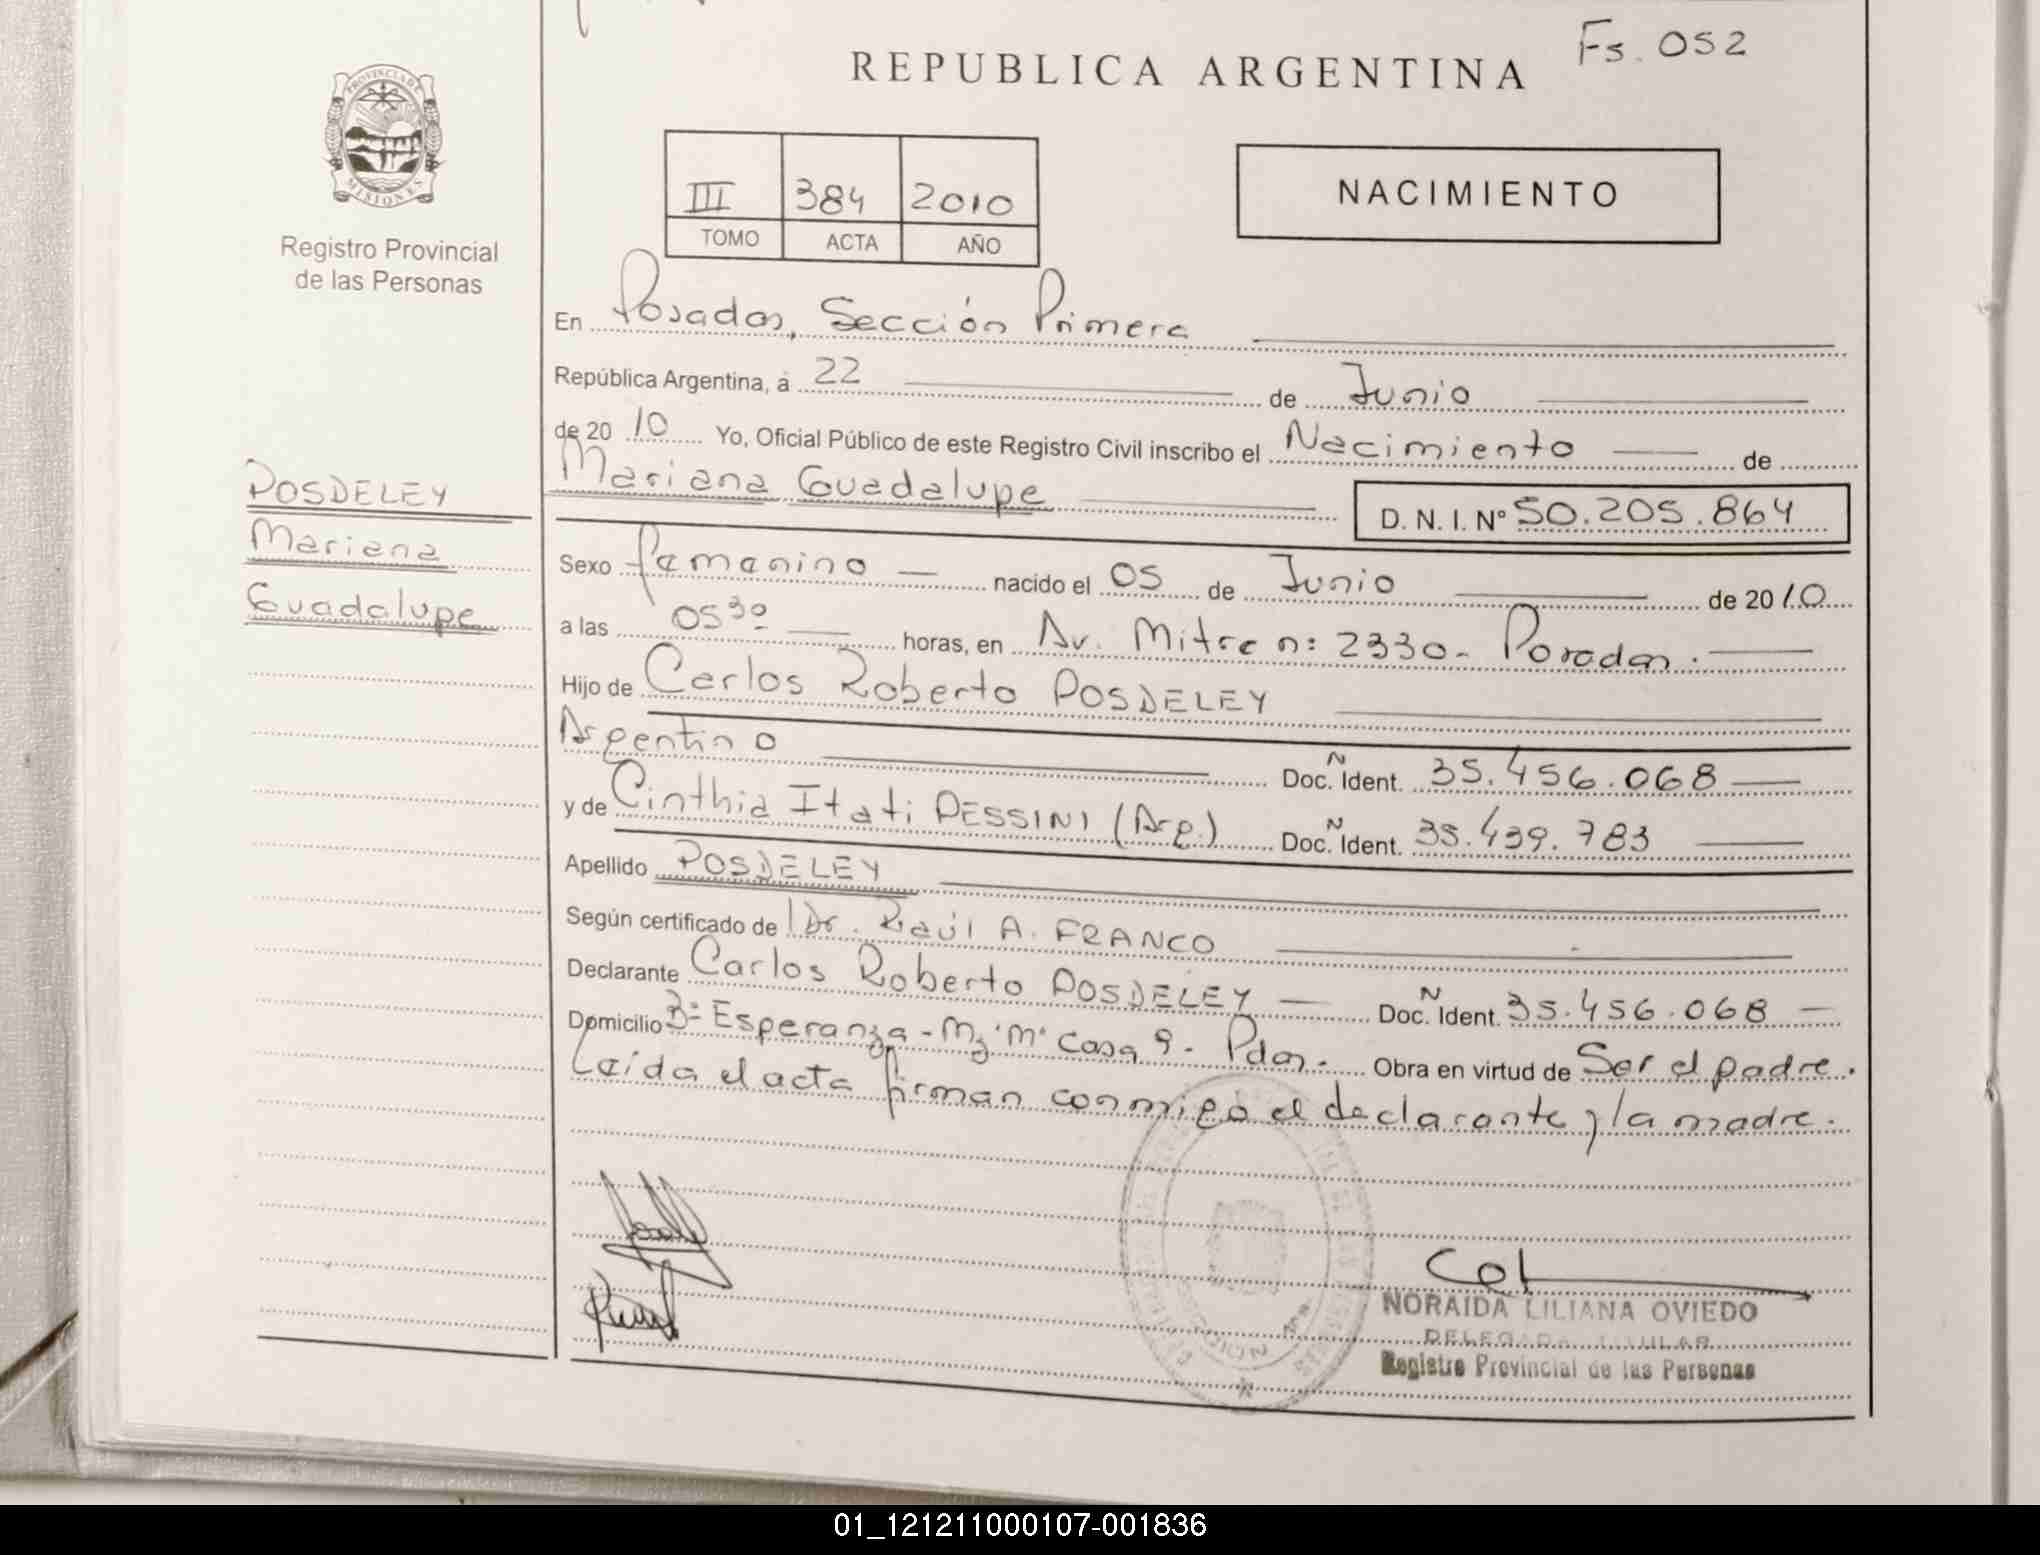 Fs. 052
REPUBLICA ARGENTINA
PROVINCIA DE
MISIONES
Registro Provincial
de las Personas
III 384 2010
TOMO ACTA AÑO
NACIMIENTO
En Posadas, Sección Primera
República Argentina, a 22 de Junio
de 2010 Yo, Oficial Público de este Registro Civil inscribo el Nacimiento de
Mariana Guadalupe D. N. I. Nº 50.205.864
POSDELEY
Mariana
Guadalupe
Sexo femenino nacido el 05 de Junio de 2010
a las 05³⁰ horas, en Av. Mitre nº 2330- Posadas.
Hijo de Carlos Roberto POSDELEY
Argentino Doc. N Ident. 35.456.068
y de Cinthia Itati PESSINI (Arg.) Doc. N Ident. 35.439.783
Apellido POSDELEY
Según certificado de Dr. Raúl A. FRANCO
Declarante Carlos Roberto POSDELEY Doc. N Ident. 35.456.068
Domicilio Bº Esperanza - Mz "M" Casa 9 - Pdas. Obra en virtud de Ser el padre.
Leída el acta firman conmigo el declarante y la madre.
NORAIDA LILIANA OVIEDO
DELEGADA TITULAR
Registro Provincial de las Personas
01_121211000107-001836